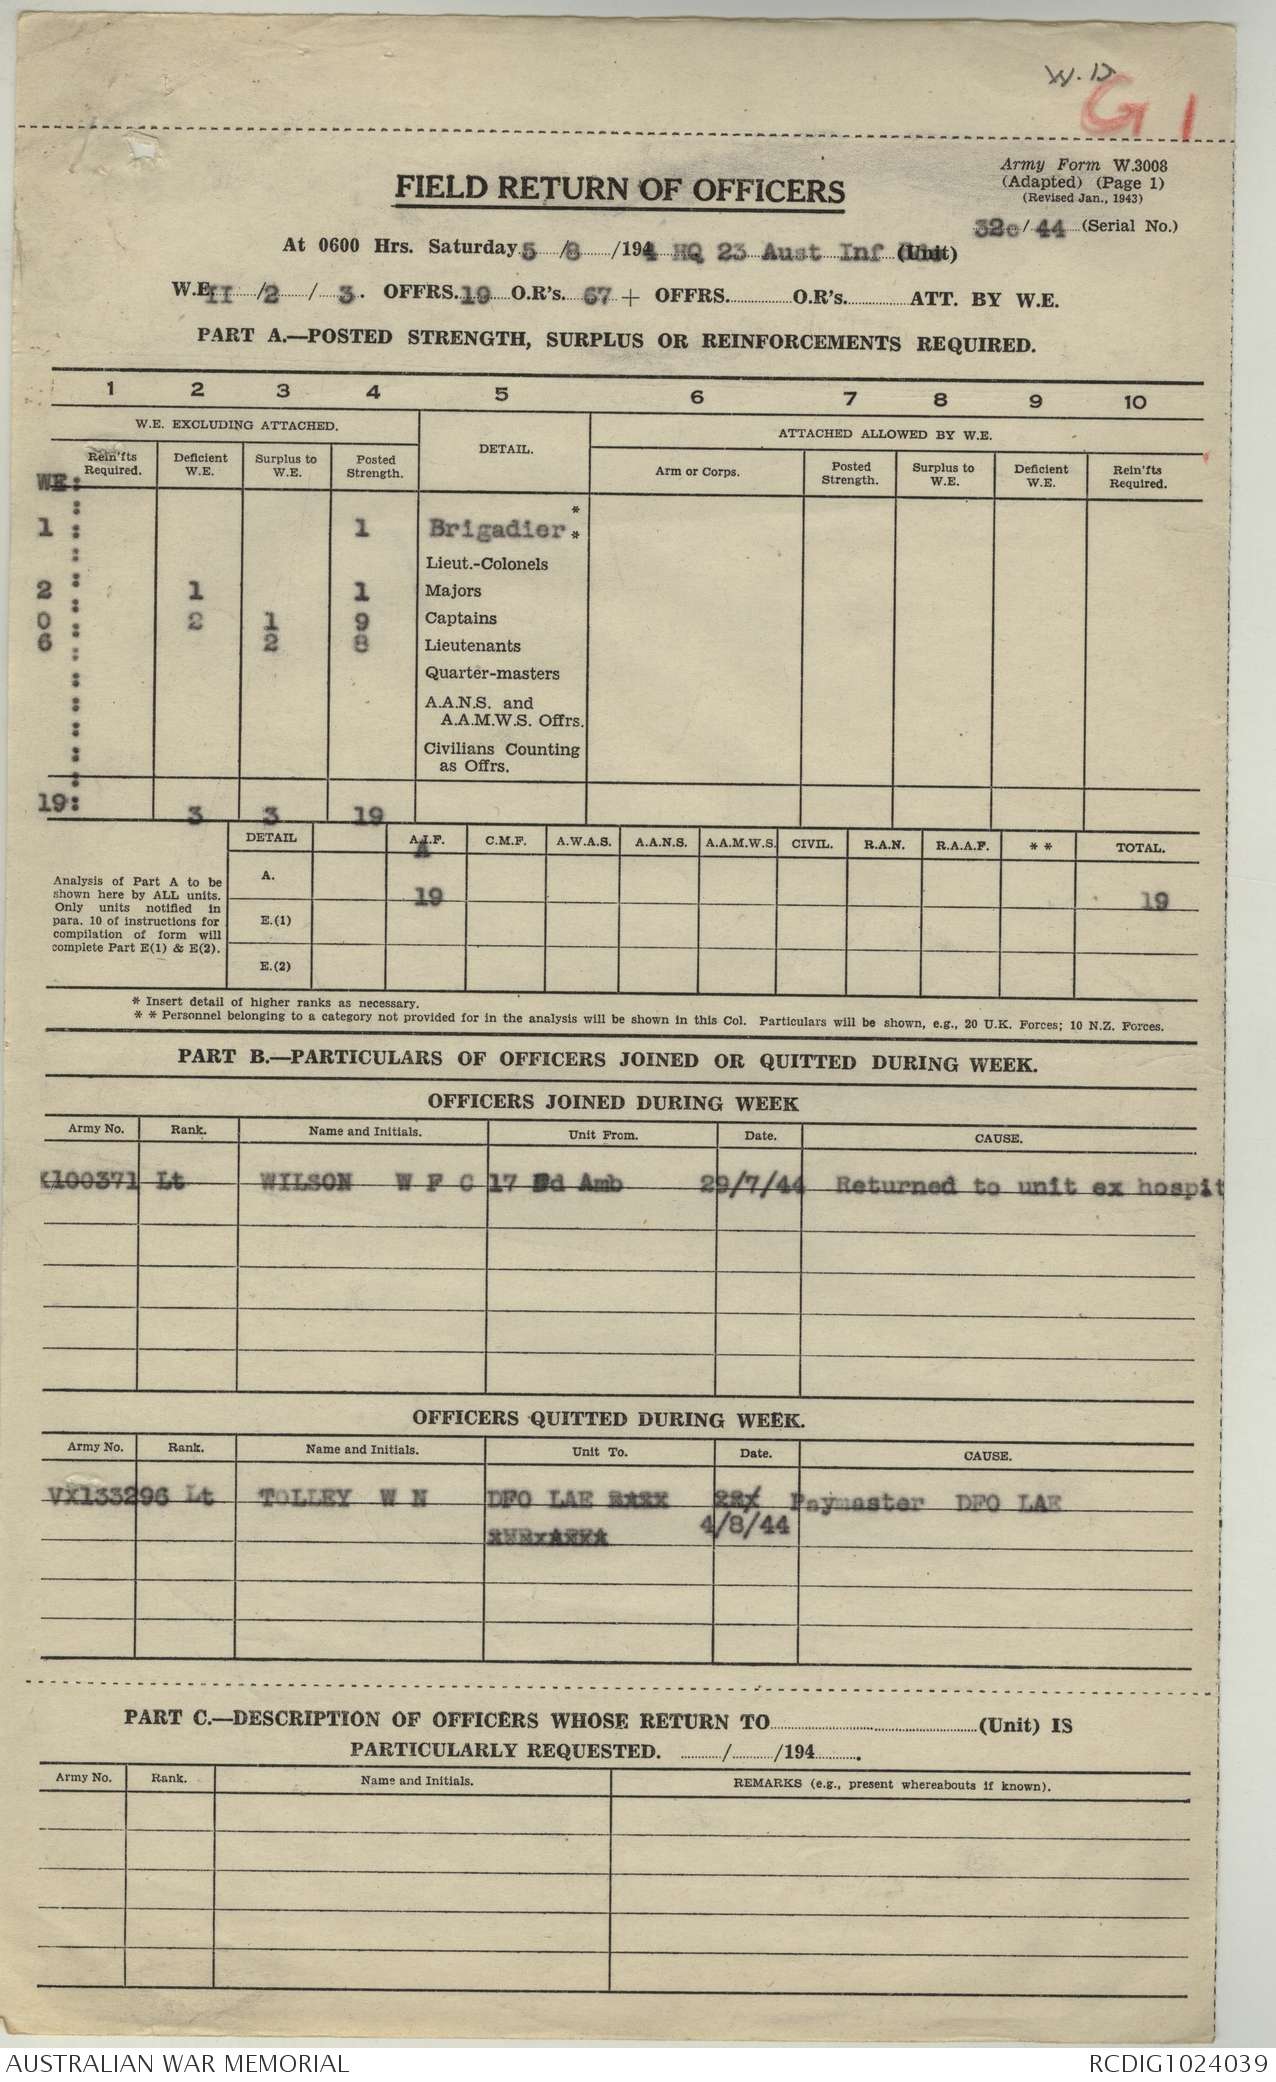 W.D
G 1
Army Form W.3008
(Adapted) (Page 1)
(Revised Jan., 1943)
FIELD RETURN OF OFFICERS
32c/44 (Serial No.)
At 0600 Hrs. Saturday 5/8/1944 HQ 23 Aust Inf (Unit)
W.E. II/2/3. OFFRS. 19 O.R's. 67 + OFFRS. O.R's. ATT. BY W.E.
PART A.—POSTED STRENGTH, SURPLUS OR REINFORCEMENTS REQUIRED.
1 2 3 4 5 6 7 8 9 10
W.E. EXCLUDING ATTACHED. DETAIL. ATTACHED ALLOWED BY W.E.
Rein'fts Required. Deficient W.E. Surplus to W.E. Posted Strength. Arm or Corps. Posted Strength. Surplus to W.E. Deficient W.E. Rein'fts Required.
WE:
*
1 : 1 Brigadier *
Lieut.-Colonels
2 : 1 1 Majors
0 : 2 1 9 Captains
6 : 2 8 Lieutenants
Quarter-masters
A.A.N.S. and
A.A.M.W.S. Offrs.
Civilians Counting
as Offrs.
19: 3 3 19
DETAIL A.I.F. C.M.F. A.W.A.S. A.A.N.S. A.A.M.W.S. CIVIL. R.A.N. R.A.A.F. * * TOTAL.
A
Analysis of Part A to be
shown here by ALL units.
Only units notified in
para. 10 of instructions for
compilation of form will
complete Part E(1) & E(2).
A. 19 19
E.(1)
E.(2)
* Insert detail of higher ranks as necessary.
* * Personnel belonging to a category not provided for in the analysis will be shown in this Col. Particulars will be shown, e.g., 20 U.K. Forces; 10 N.Z. Forces.
PART B.—PARTICULARS OF OFFICERS JOINED OR QUITTED DURING WEEK.
OFFICERS JOINED DURING WEEK
Army No. Rank. Name and Initials. Unit From. Date. CAUSE.
X100371 Lt WILSON W F C 17 Fd Amb 29/7/44 Returned to unit ex hospit
OFFICERS QUITTED DURING WEEK.
Army No. Rank. Name and Initials. Unit To. Date. CAUSE.
VX133296 Lt TOLLEY W N DFO LAE Paymaster DFO LAE
4/8/44
PART C.—DESCRIPTION OF OFFICERS WHOSE RETURN TO (Unit) IS
PARTICULARLY REQUESTED. / /194 .
Army No. Rank. Name and Initials. REMARKS (e.g., present whereabouts if known).
AUSTRALIAN WAR MEMORIAL RCDIG1024039